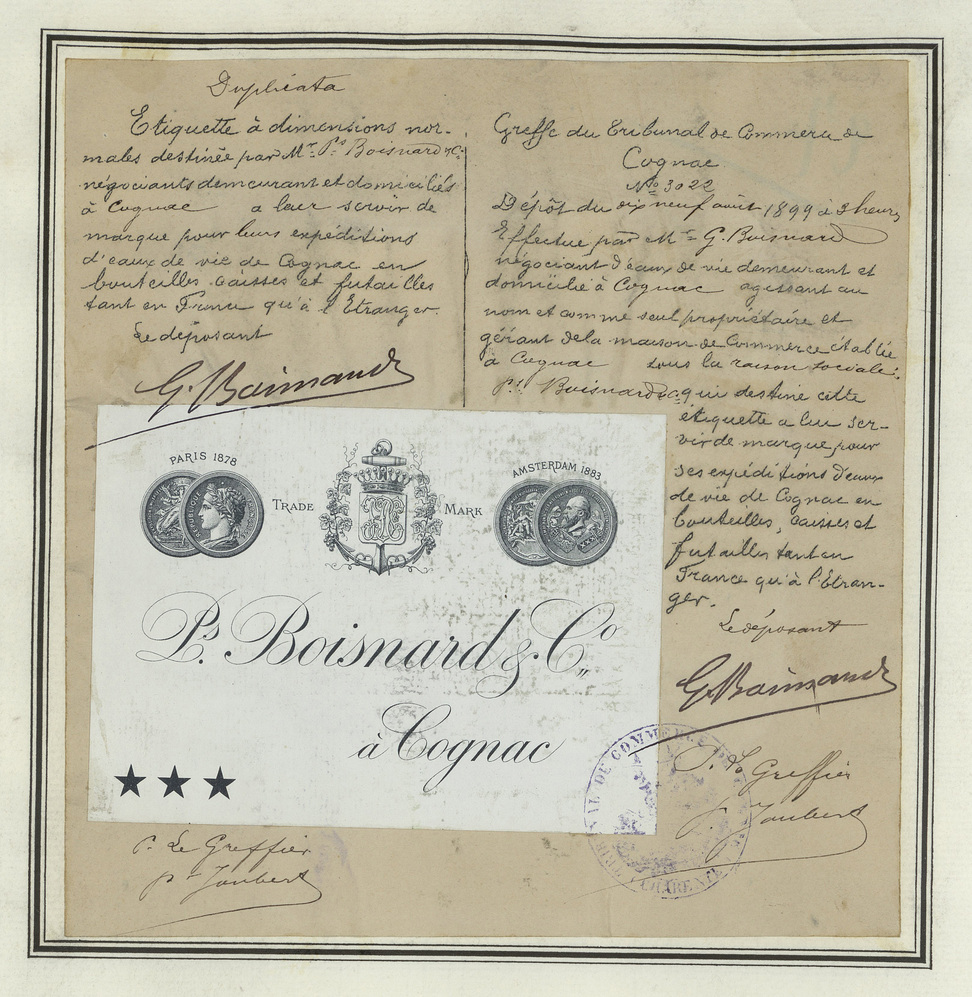 Duplicata
Etiquette à dimensions nor-
males destinée par Mr. Ps Boisnard & Cie
négociants demeurant et domiciliés
à Cognac a leur servir de
marque pour leurs expéditions
d'eaux de vie de Cognac en
bouteilles caisses et futailles
tant en France qu'à l'Etranger.
Le déposant
G. Boisnard
Greffe du Tribunal de Commerce de
Cognac
No 3022
Dépôt du dix neuf août 1899 à 3 heures
Effectué par Mr G. Boisnard
négociant d'eaux de vie demeurant et
domicilié à Cognac agissant au
nom et comme seul propriétaire et
gérant de la maison de Commerce établie
à Cognac sous la raison sociale:
Ps Boisnard & Co qui destine cette
étiquette a leu ser-
vir de marque pour
ses expéditions d'eaux
de vie de Cognac en
bouteilles, caisses et
futailles tant en
France qu'à l'Etran-
ger.
Le déposant
G. Boisnard
PARIS 1878
AMSTERDAM 1883
TRADE MARK
Ps. Boisnard & Co,,
à Cognac
P. Le Greffier
Joubert
P. Le Greffier
Joubert
TRIBUNAL DE COMMERCE DE
CHARENTE